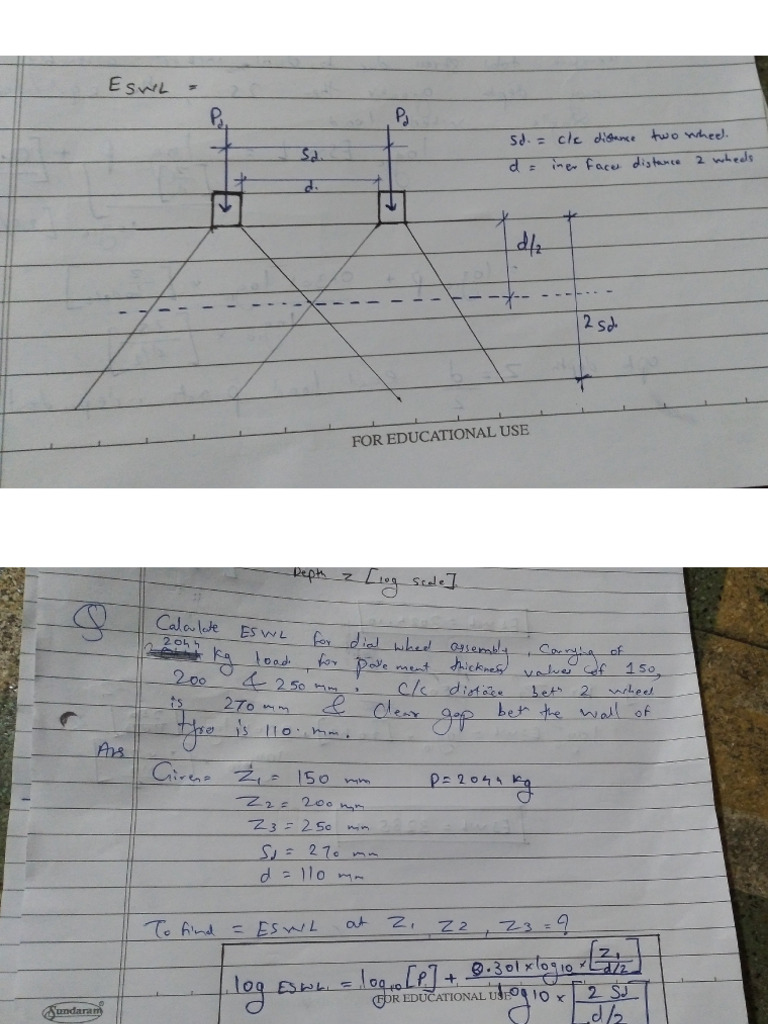 ESWL =
Pd Pd
Sd.
d.
Sd. = c/c distance two wheel.
d = iner faces distance 2 wheels
d/2
2 Sd
FOR EDUCATIONAL USE
Depth z [log scale]
Q Calculate ESWL for dial wheel assembly, Carrying of
2044 kg load, for pavement thickness values of 150,
200 & 250 mm. c/c distace betn 2 wheel
is 270 mm & Clear gap betn the wall of
tyre is 110. mm.
Ans
Given= Z1 = 150 mm P = 2044 kg
Z2 = 200 mm
Z3 = 250 mm
Sd = 270 mm
d = 110 mm
To find = ESWL at Z1, Z2, Z3 = ?
log ESWL = log10 [P] + 0.301 x log10 x [Z1 / d/2]
log10 x [2 Sd / d/2]
FOR EDUCATIONAL USE
Sundaram